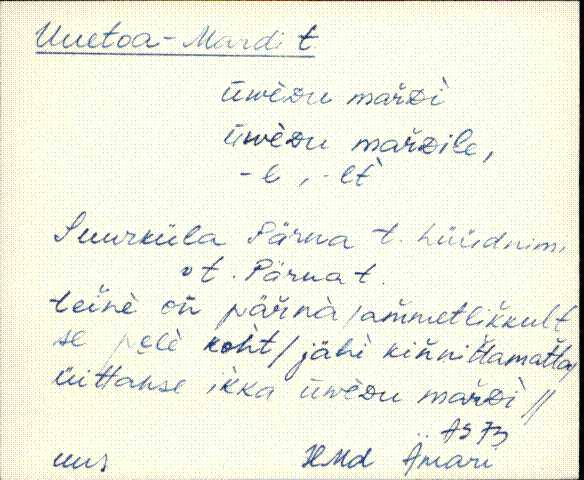 Uuetoa-Mardi t.
üwèDu mar̆Dì
üwèDu mar̆Dile,
-l, -lt̀
Suurküla Pärna t. hüüdnimi
vt. Pärna t.
tein̆è on̆ pär̆nà / am̆metlikkult
se pɐlè kòht / jähì kin̆nittamatta /
üittahse ikka üwèDu mar̆Dì //
AS 73
uus HMd Ämari